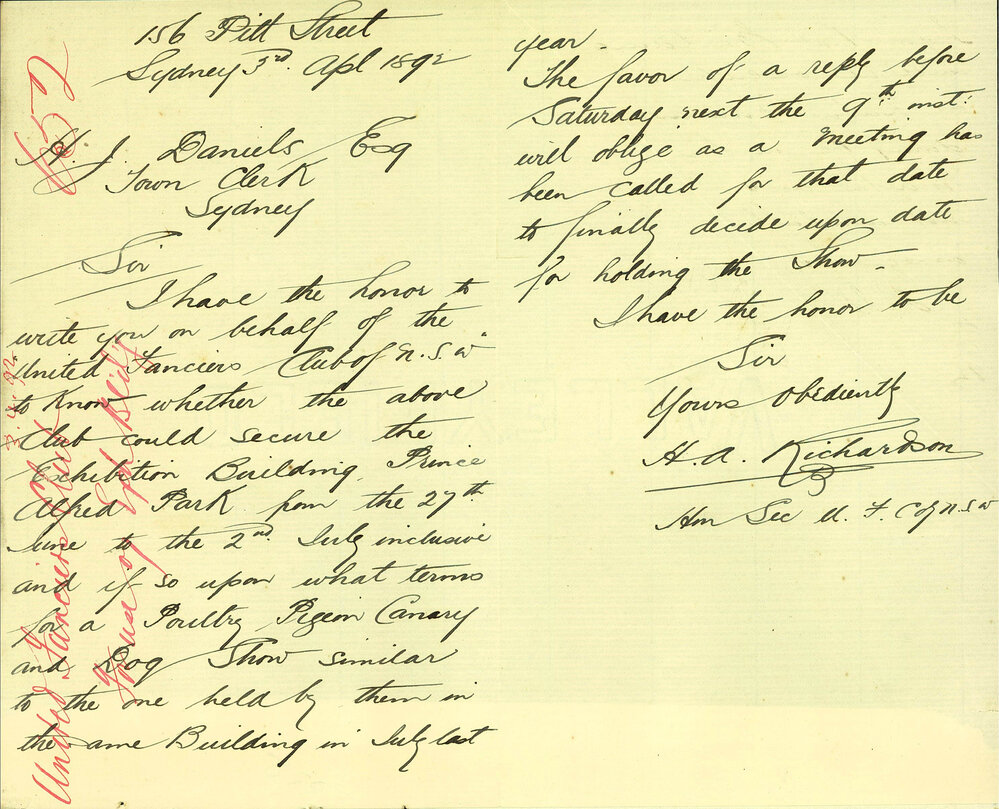 156 Pitt Street
Sydney 3rd. Apl 1892
H. J. Daniels Esq
Town Clerk
Sydney
Sir
I have the honor to
write you on behalf of the
United Fanciers Club of N.S.W
to know whether the above
Club could secure the
Exhibition Building, Prince
Alfred Park from the 27th
June to the 2nd. July inclusive
and if so upon what terms
for a Poultry Pigeon Canary
and Dog Show similar
to the one held by them in
the same Building in July last
year.
The favor of a reply before
Saturday next the 9th inst:
will oblige as a meeting has
been called for that date
to finally decide upon date
for holding the Show.
I have the honor to be
Sir
Yours Obediently
H. A. Richardson
Hon Sec U. F. C of N.S.W
United Fanciers Club
Use of Exh Bldg